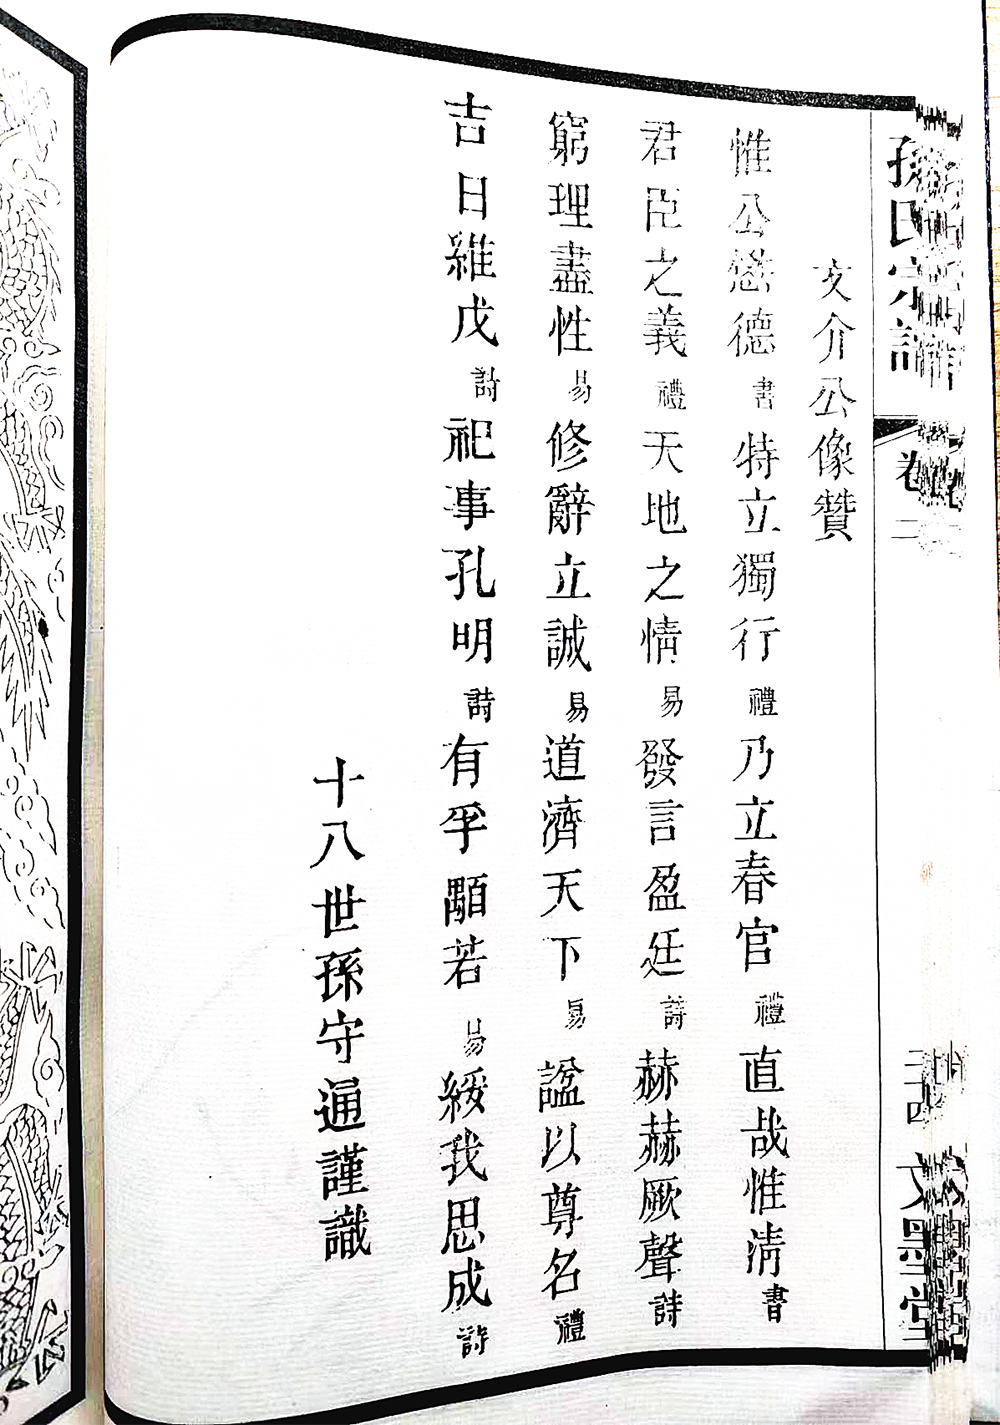 孫氏宗譜 卷二 三十四 文墨堂
文介公像贊
惟公懋德書特立獨行禮乃立春官禮直哉惟清書
君臣之義禮天地之情易發言盈廷詩赫赫厥聲詩
窮理盡性易修辭立誠易道濟天下易諡以尊名禮
吉日維戊詩祀事孔明詩有孚顒若易綏我思成詩
十八世孫守通謹識